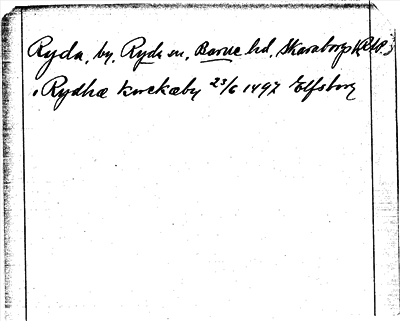 Ryda, by, Ryda sn, Barne hd, Skaraborgs l
i Rydhæ kirckæby 23/6 1497 Elfsborg